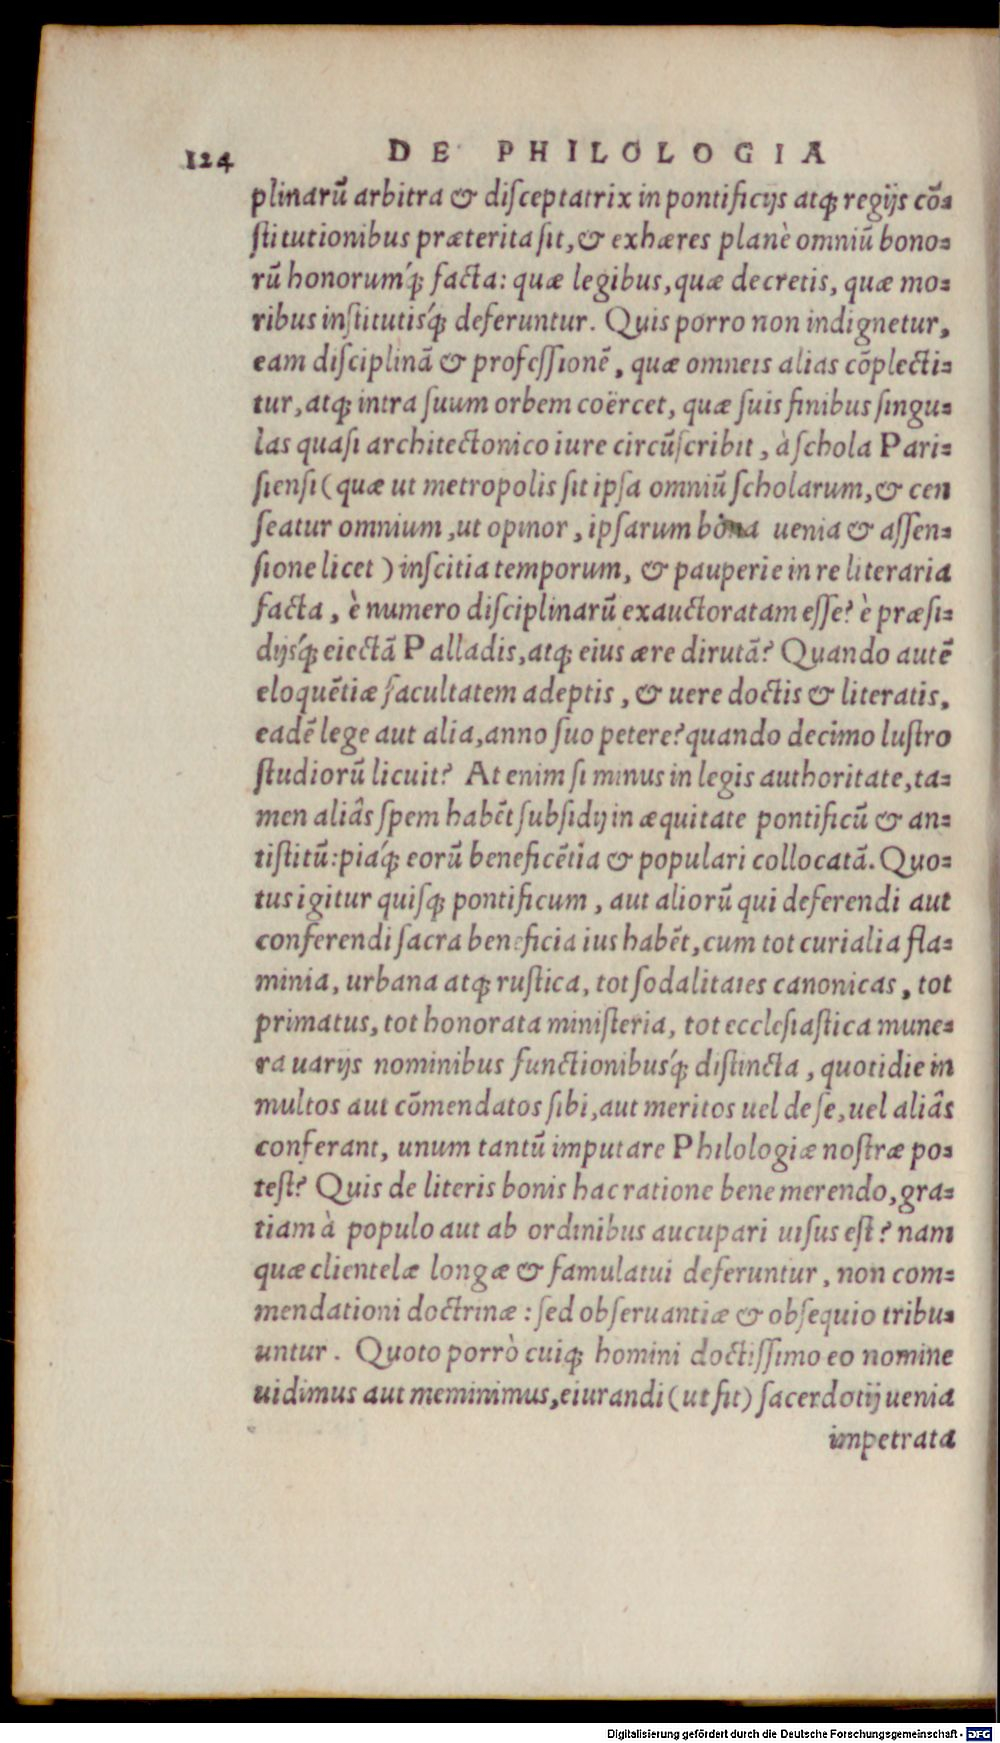 124 DE PHILOLOGIA
plinarū arbitra & diſceptatrix in pontificijs atq; regijs cō-
ſtitutionibus præterita ſit, & exhæres planè omniū bono-
rū honorum´q; facta: quæ legibus, quæ decretis, quæ mo-
ribus inſtitutis´q; deferuntur. Quis porro non indignetur,
eam diſciplinā & profeſſionē, quæ omneis alias cōplecti-
tur, atq; intra ſuum orbem coërcet, quæ ſuis finibus ſingu-
las quaſi architectonico iure circūſcribit, à ſchola Pari-
ſienſi (quæ ut metropolis ſit ipſa omniū ſcholarum, & cen
ſeatur omnium, ut opinor, ipſarum bona uenia & aſſen-
ſione licet) inſcitia temporum, & pauperie in re literaria
facta, è numero diſciplinarū exauctoratam eſſe? è præſi-
dijs´q; eiectā Palladis, atq; eius ære dirutā? Quando autē
eloquētiæ facultatem adeptis, & uere doctis & literatis,
eadē lege aut alia, anno ſuo petere? quando decimo luſtro
ſtudiorū licuit? At enim ſi minus in legis authoritate, ta-
men aliâs ſpem habēt ſubſidij in æquitate pontificū & an-
tiſtitū: pia´q; eorū beneficētia & populari collocatā. Quo-
tus igitur quiſq; pontificum, aut aliorū qui deferendi aut
conferendi ſacra beneficia ius habēt, cum tot curialia fla-
minia, urbana atq; ruſtica, tot ſodalitates canonicas, tot
primatus, tot honorata miniſteria, tot eccleſiaſtica mune-
ra uarijs nominibus functionibus´q; diſtincta, quotidie in
multos aut cōmendatos ſibi, aut meritos uel de ſe, uel aliâs
conferant, unum tantū imputare Philologiæ noſtræ po-
teſt? Quis de literis bonis hac ratione bene merendo, gra-
tiam à populo aut ab ordinibus aucupari uiſus eſt? nam
quæ clientelæ longæ & famulatui deferuntur, non com-
mendationi doctrinæ: ſed obſeruantiæ & obſequio tribu-
untur. Quoto porrò cuiq; homini doctiſſimo eo nomine
uidimus aut meminimus, eiurandi (ut fit) ſacerdotij uenia
impetrata
Digitalisierung gefördert durch die Deutsche Forschungsgemeinschaft - DFG